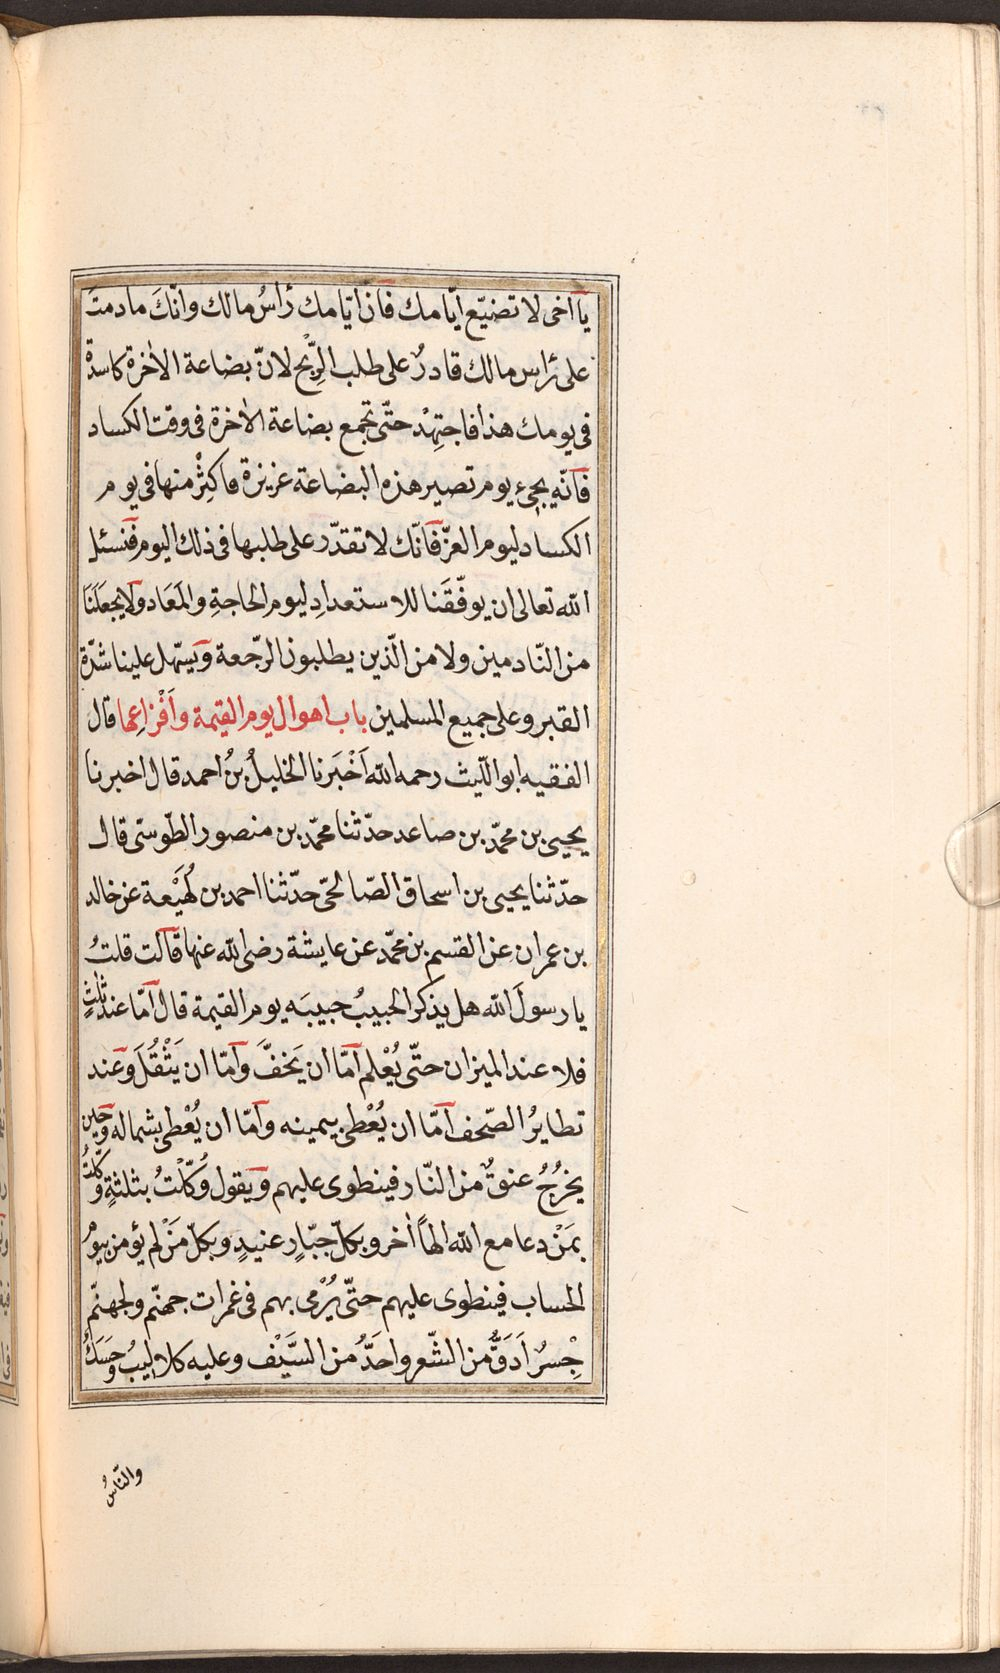 يا اخى لا تضيّع ايّامك فان ايّامك رأسُ مالك وانّكَ مادمتَ
على رأس مالك قادرٌ على طلب الرِّبح لانّ بضاعة الاٰخرة كاسدة
فى يومك هذا فاجتهِدْ حتّى تجمع بضاعة الاٰخرة فى وقت الكساد
فانّه يجىء يوم تصير هذه البضاعة عزيزة فاكثِرْ منها فى يوم
الكساد ليوم العزّ فانّك لا تقدّر على طلبها فى ذلك اليوم فنسئل
اللّه تعالى ان يوفّقَنا للاستعدادِ ليومِ الحاجةِ والمَعَاد ولا يجعلَنَا
من النّادمين ولا من الّذين يطلبون الرّجعة ويسهّل علينا شدّة
القبر وعلى جميع المسلمين باب اهوال يوم القيمة وَاَفْزاعِها قال
الفقيه ابو اللّيث رحمه اللّه اَخْبَرنا الخليلُ بنُ احمد قال اخبرنا
يحيى بن محمّد بن صاعد حدّثنا محمّد بن منصور الطّوسّى قال
حدّثنا يحيى بن اسحاق الصّالحىّ حدّثنا احمد بن لُهَيْعة عن خالد
بن عمران عن القسم بن محمّد عن عايشة رضى اللّه عنها قالت قلتُ
يا رسولَ اللّه هل يذكر الحبيبُ حبيبَه يوم القيمة قال امّا عند ثلٰثٍ
فلا عند الميزان حتّى يُعْلم امّا ان يَخفَّ وامّا ان يَثْقُلَ وعند
تطايرُ الصّحف امّا ان يُعْطى بيمينه وامّا ان يُعْطى بشماله وحين
يخرُجُ عنقٌ من النّار فينطوى عليهم ويقول وُكّلْتُ بثلثةٍ وُكّلتُ
بمَنْ دعا مع اللّه الهاً اٰخر وبكلّ جبّارٍ عنيدٍ وبكلّ مَنْ لم يؤمن بيوم
الحساب فينطوى عليهم حتّى يُرْمى بهم فى غمرات جهنّم ولجهنّم
جِسْرٌ اَدَقُّ من الشّعر واحَدُّ من السَّيْف وعليه كلاليبُ وحَسَكٌ
والنّاسُ